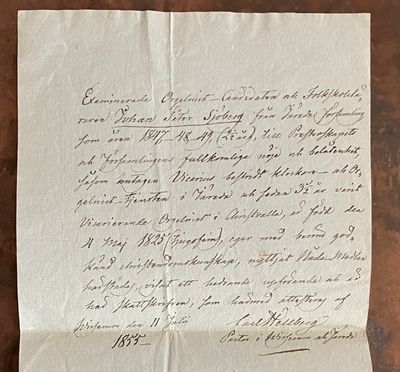 Examinerade Orgelnist-Candidaten och Folkskolelä-
raren Johan Peter Sjöberg från Järeda församling
som åren 1847-48-49, (2½ år), till Presterskapets
och Församlingens fullkomliga nöje och belåtenhet,
såsom antagen Vicarius bestridt klockare- och Or-
gelnist-tjensten i Järeda och sedan 3½ år varit
Vicarierande Orgelnist i, är född den
4 Maj 1825 (tjugofem), eger med berömd god-
känd christendomskunskap, nyttjat Nådemedlen
härstädes, visat ett hedrande uppförande och är
här skattskrifven, som härmed attesteras af
Wirserum den 11 Juli
1855—
Carl Hellberg
Pastor i Wirserum och Järeda